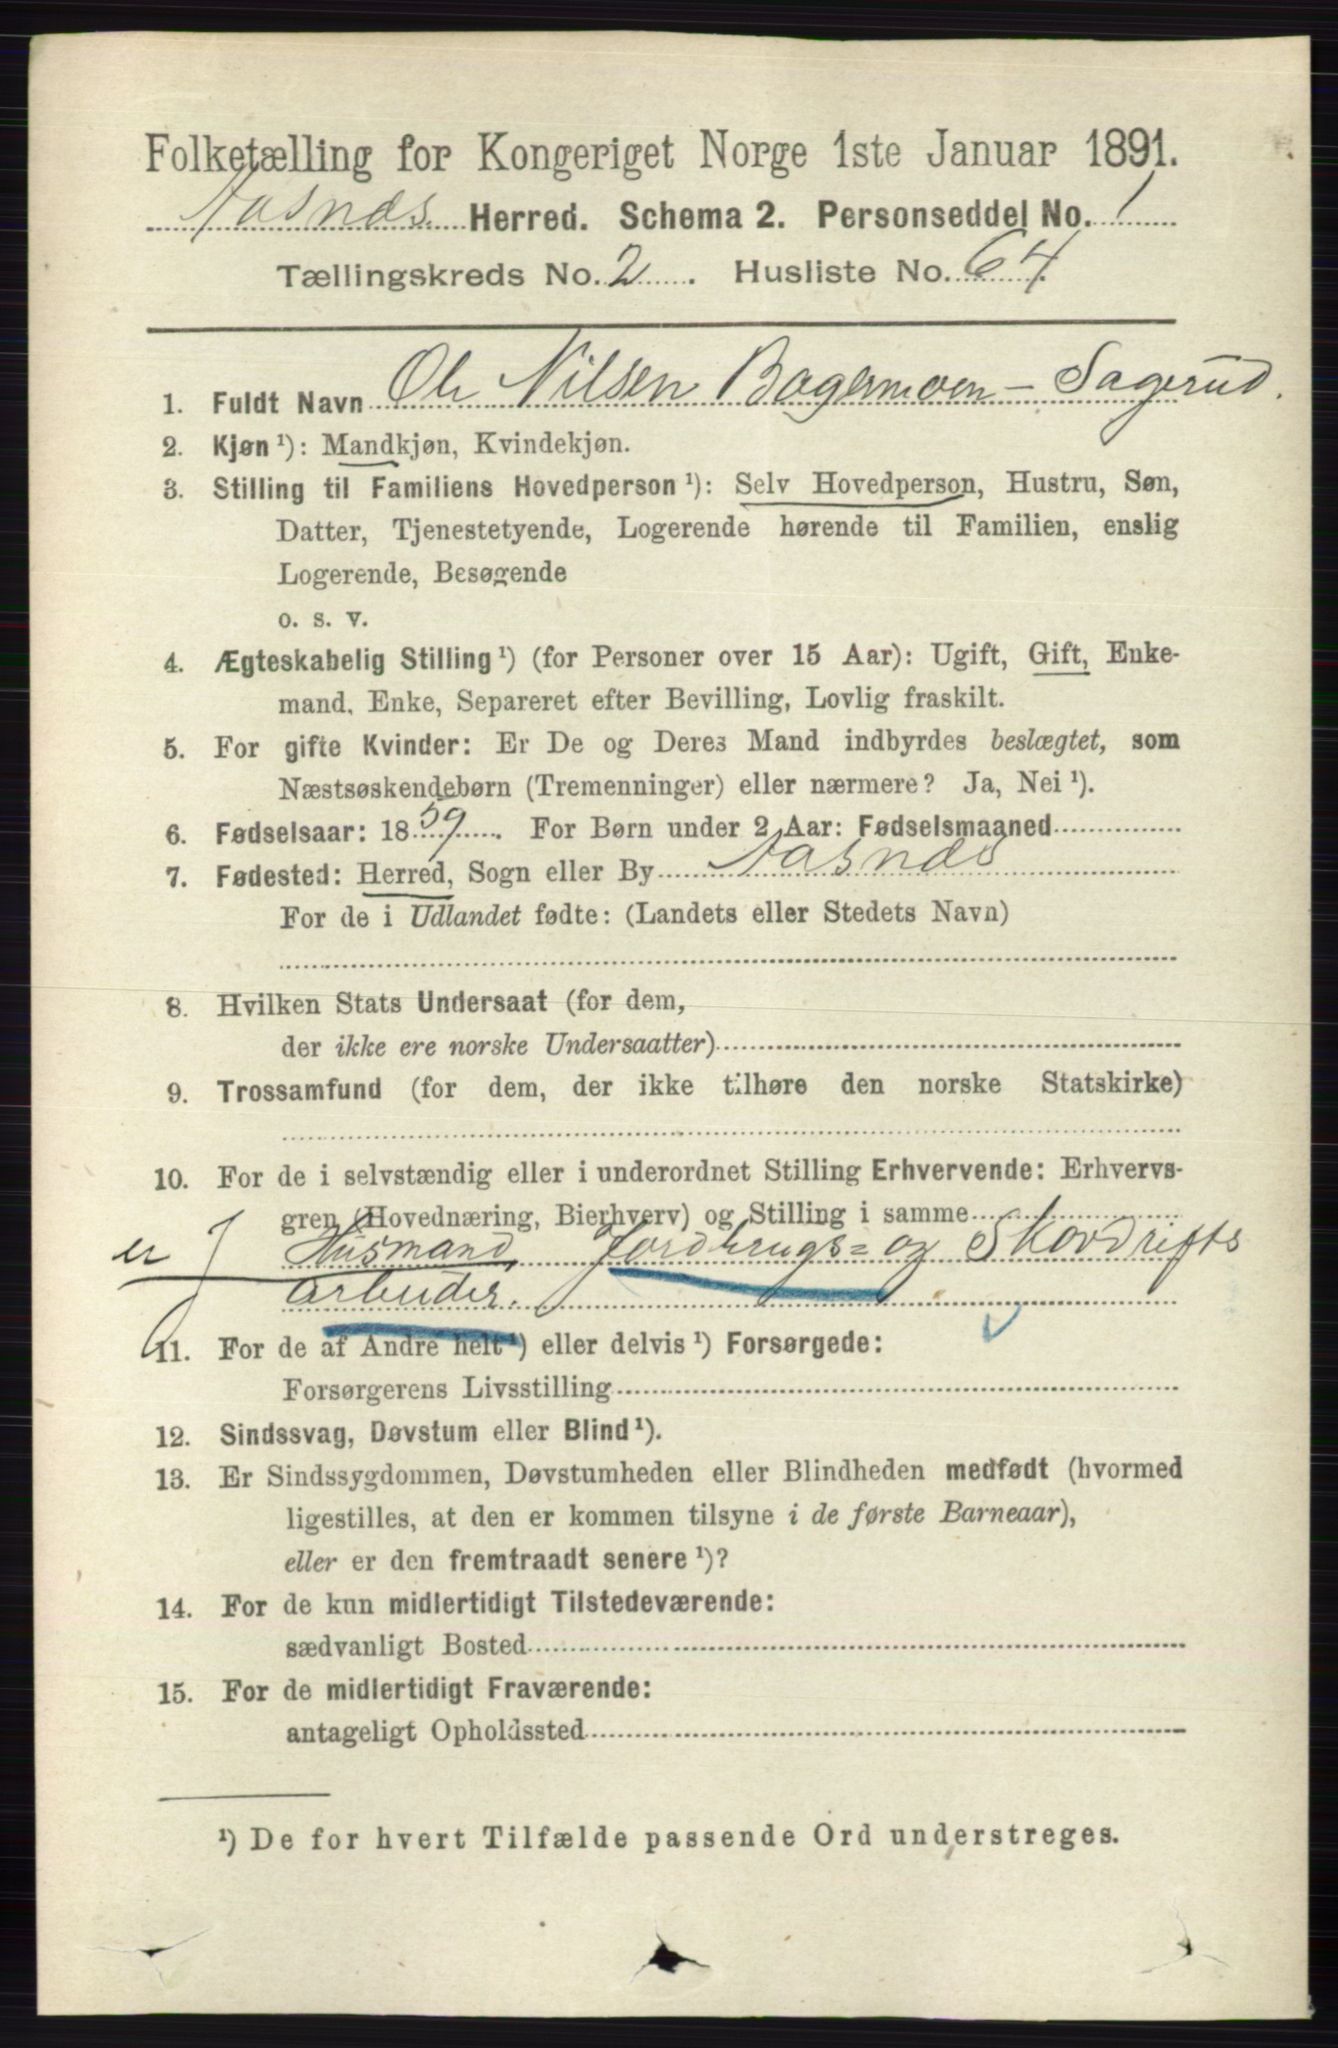 Folketælling for Kongeriget Norge 1ste Januar 1891.
Aasnæs Herred. Schema 2. Personseddel No. 1
Tællingskreds No. 2. Husliste No. 64.
1. Fuldt Navn Ole Nilsen Bagermoen - Sagerud.
2. Kjøn ¹): Mandkjøn, Kvindekjøn.
3. Stilling til Familiens Hovedperson ¹): Selv Hovedperson, Hustru, Søn,
Datter, Tjenestetyende, Logerende hørende til Familien, enslig
Logerende, Besøgende
o. s. v.
4. Ægteskabelig Stilling ¹) (for Personer over 15 Aar): Ugift, Gift, Enke-
mand, Enke, Separeret efter Bevilling, Lovlig fraskilt.
5. For gifte Kvinder: Er De og Deres Mand indbyrdes beslægtet, som
Næstsøskendebørn (Tremenninger) eller nærmere? Ja, Nei ¹).
6. Fødselsaar: 1859. For Børn under 2 Aar: Fødselsmaaned
7. Fødested: Herred, Sogn eller By Aasnæs
For de i Udlandet fødte: (Landets eller Stedets Navn)
8. Hvilken Stats Undersaat (for dem,
der ikke ere norske Undersaatter)
9. Trossamfund (for dem, der ikke tilhøre den norske Statskirke)
10. For de i selvstændig eller i underordnet Stilling Erhvervende: Erhvervs-
gren (Hovednæring, Bierhverv) og Stilling i samme
er Husmand, Jordbrugs= og Skovdrifts
arbeider.
11. For de af Andre helt ¹) eller delvis ¹) Forsørgede:
Forsørgerens Livsstilling
12. Sindssvag, Døvstum eller Blind ¹).
13. Er Sindssygdommen, Døvstumheden eller Blindheden medfødt (hvormed
ligestilles, at den er kommen tilsyne i de første Barneaar),
eller er den fremtraadt senere ¹)?
14. For de kun midlertidigt Tilstedeværende:
sædvanligt Bosted
15. For de midlertidigt Fraværende:
antageligt Opholdssted
¹) De for hvert Tilfælde passende Ord understreges.